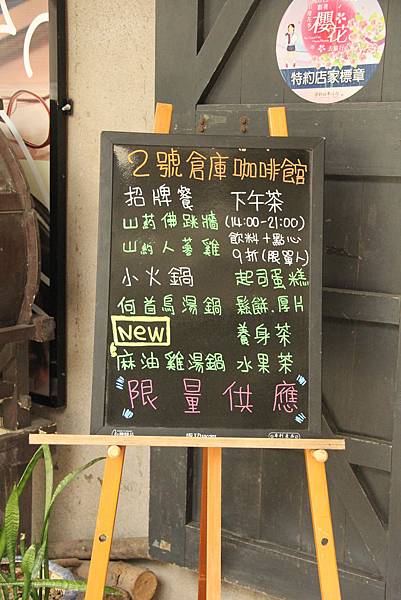 櫻花
特約店家標章
2號倉庫咖啡館
招牌餐
山药佛跳牆
山药人蔘雞
小火鍋
何首烏湯鍋
New
麻油雞湯鍋
下午茶
(14:00-21:00)
飲料+點心
9折(限單人)
起司蛋糕
鬆餅.厚片
養身茶
水果茶
限量供應